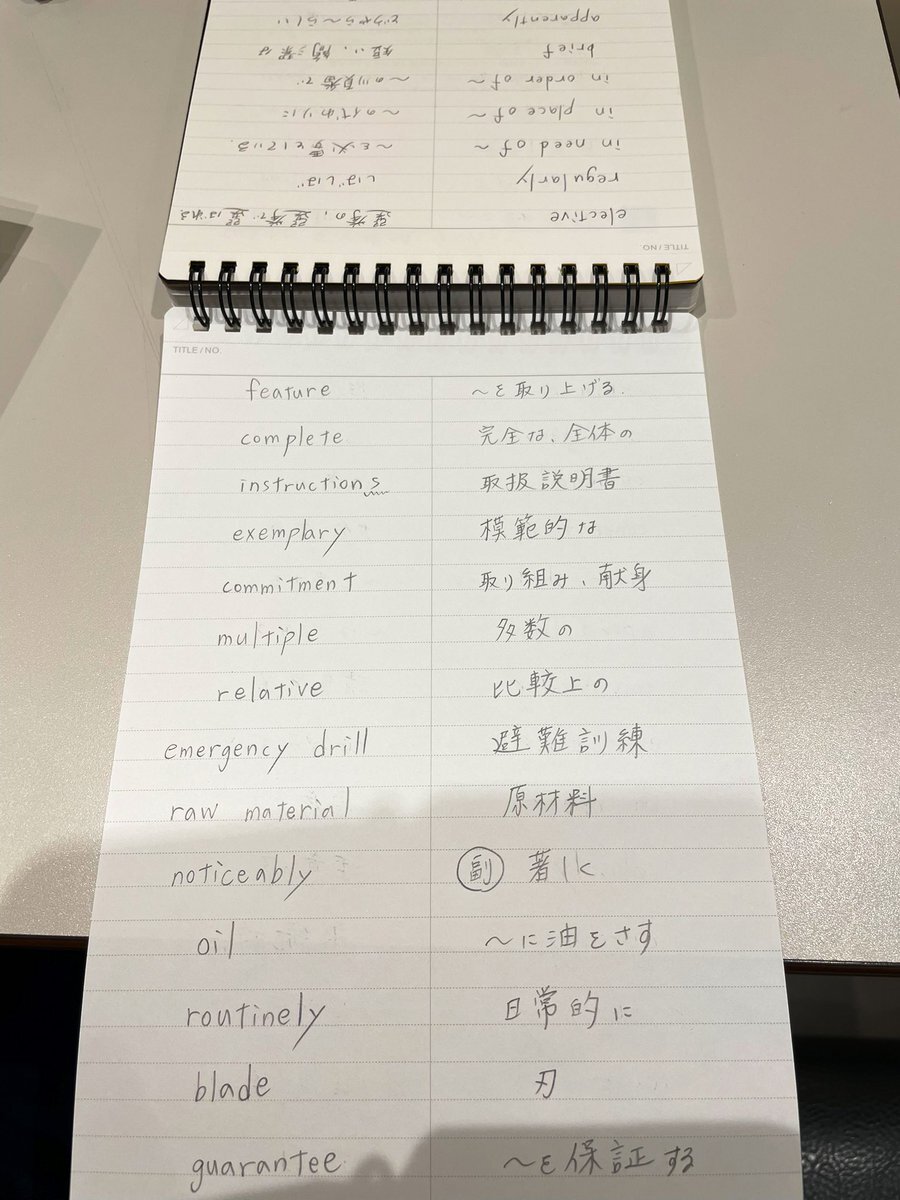 TITLE/NO.
elective 選挙の, 選挙で選ばれる
regularly しばしば
in need of ~ ~を必要としている.
in place of ~ ~の代わりに
in order of ~ ~の順番で
brief 短い、簡潔な
apparently どうやら~らしい
TITLE/NO.
feature ~を取り上げる.
complete 完全な、全体の
instructions 取扱説明書
exemplary 模範的な
commitment 取り組み、献身
multiple 多数の
relative 比較上の
emergency drill 避難訓練
raw material 原材料
noticeably 副 著しく
oil ~に油をさす
routinely 日常的に
blade 刃
guarantee ~を保証する